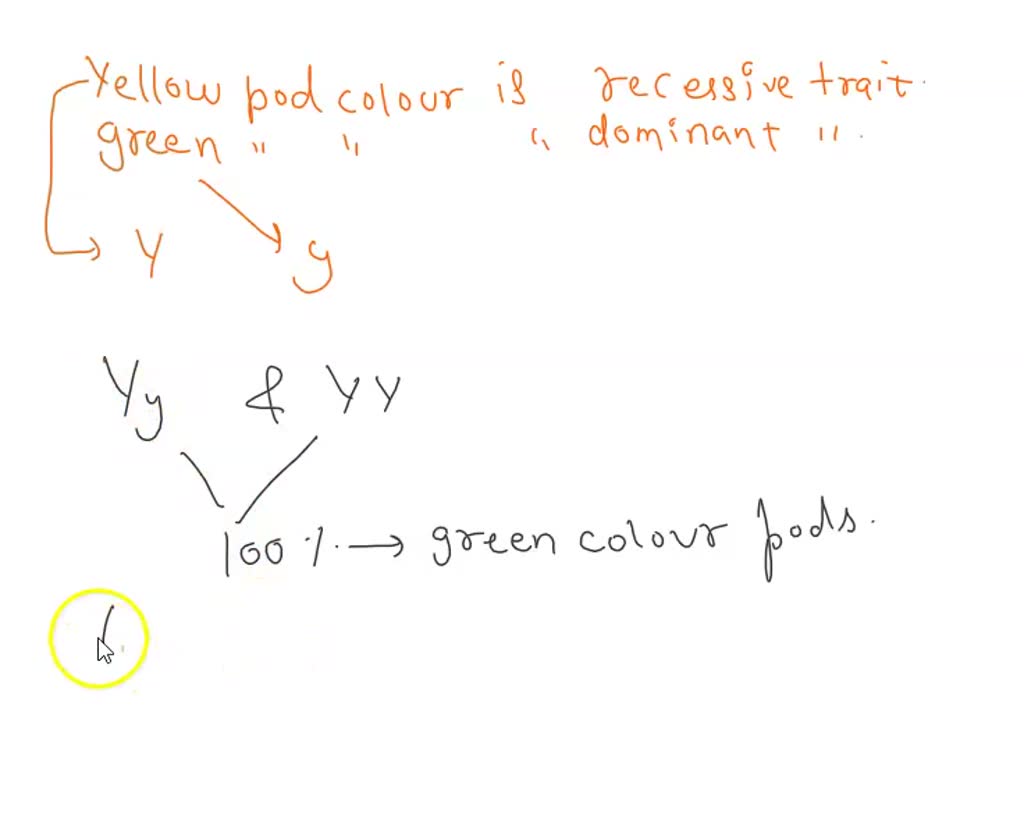 Yellow pod colour is recessive trait.
green " " " dominant ".
Y y
Yy & YY
100 % → green colour pods.
(